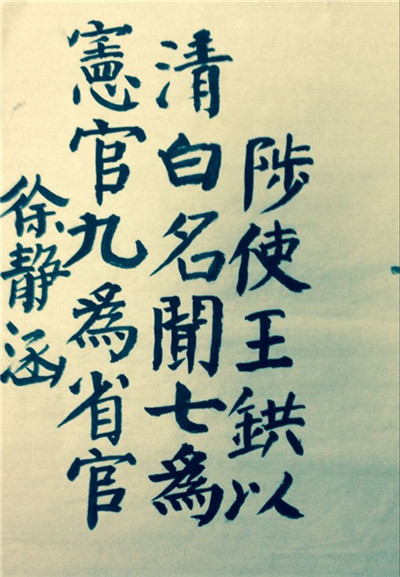 陟使王鉷以
清白名聞七為
憲官九為省官
徐靜涵